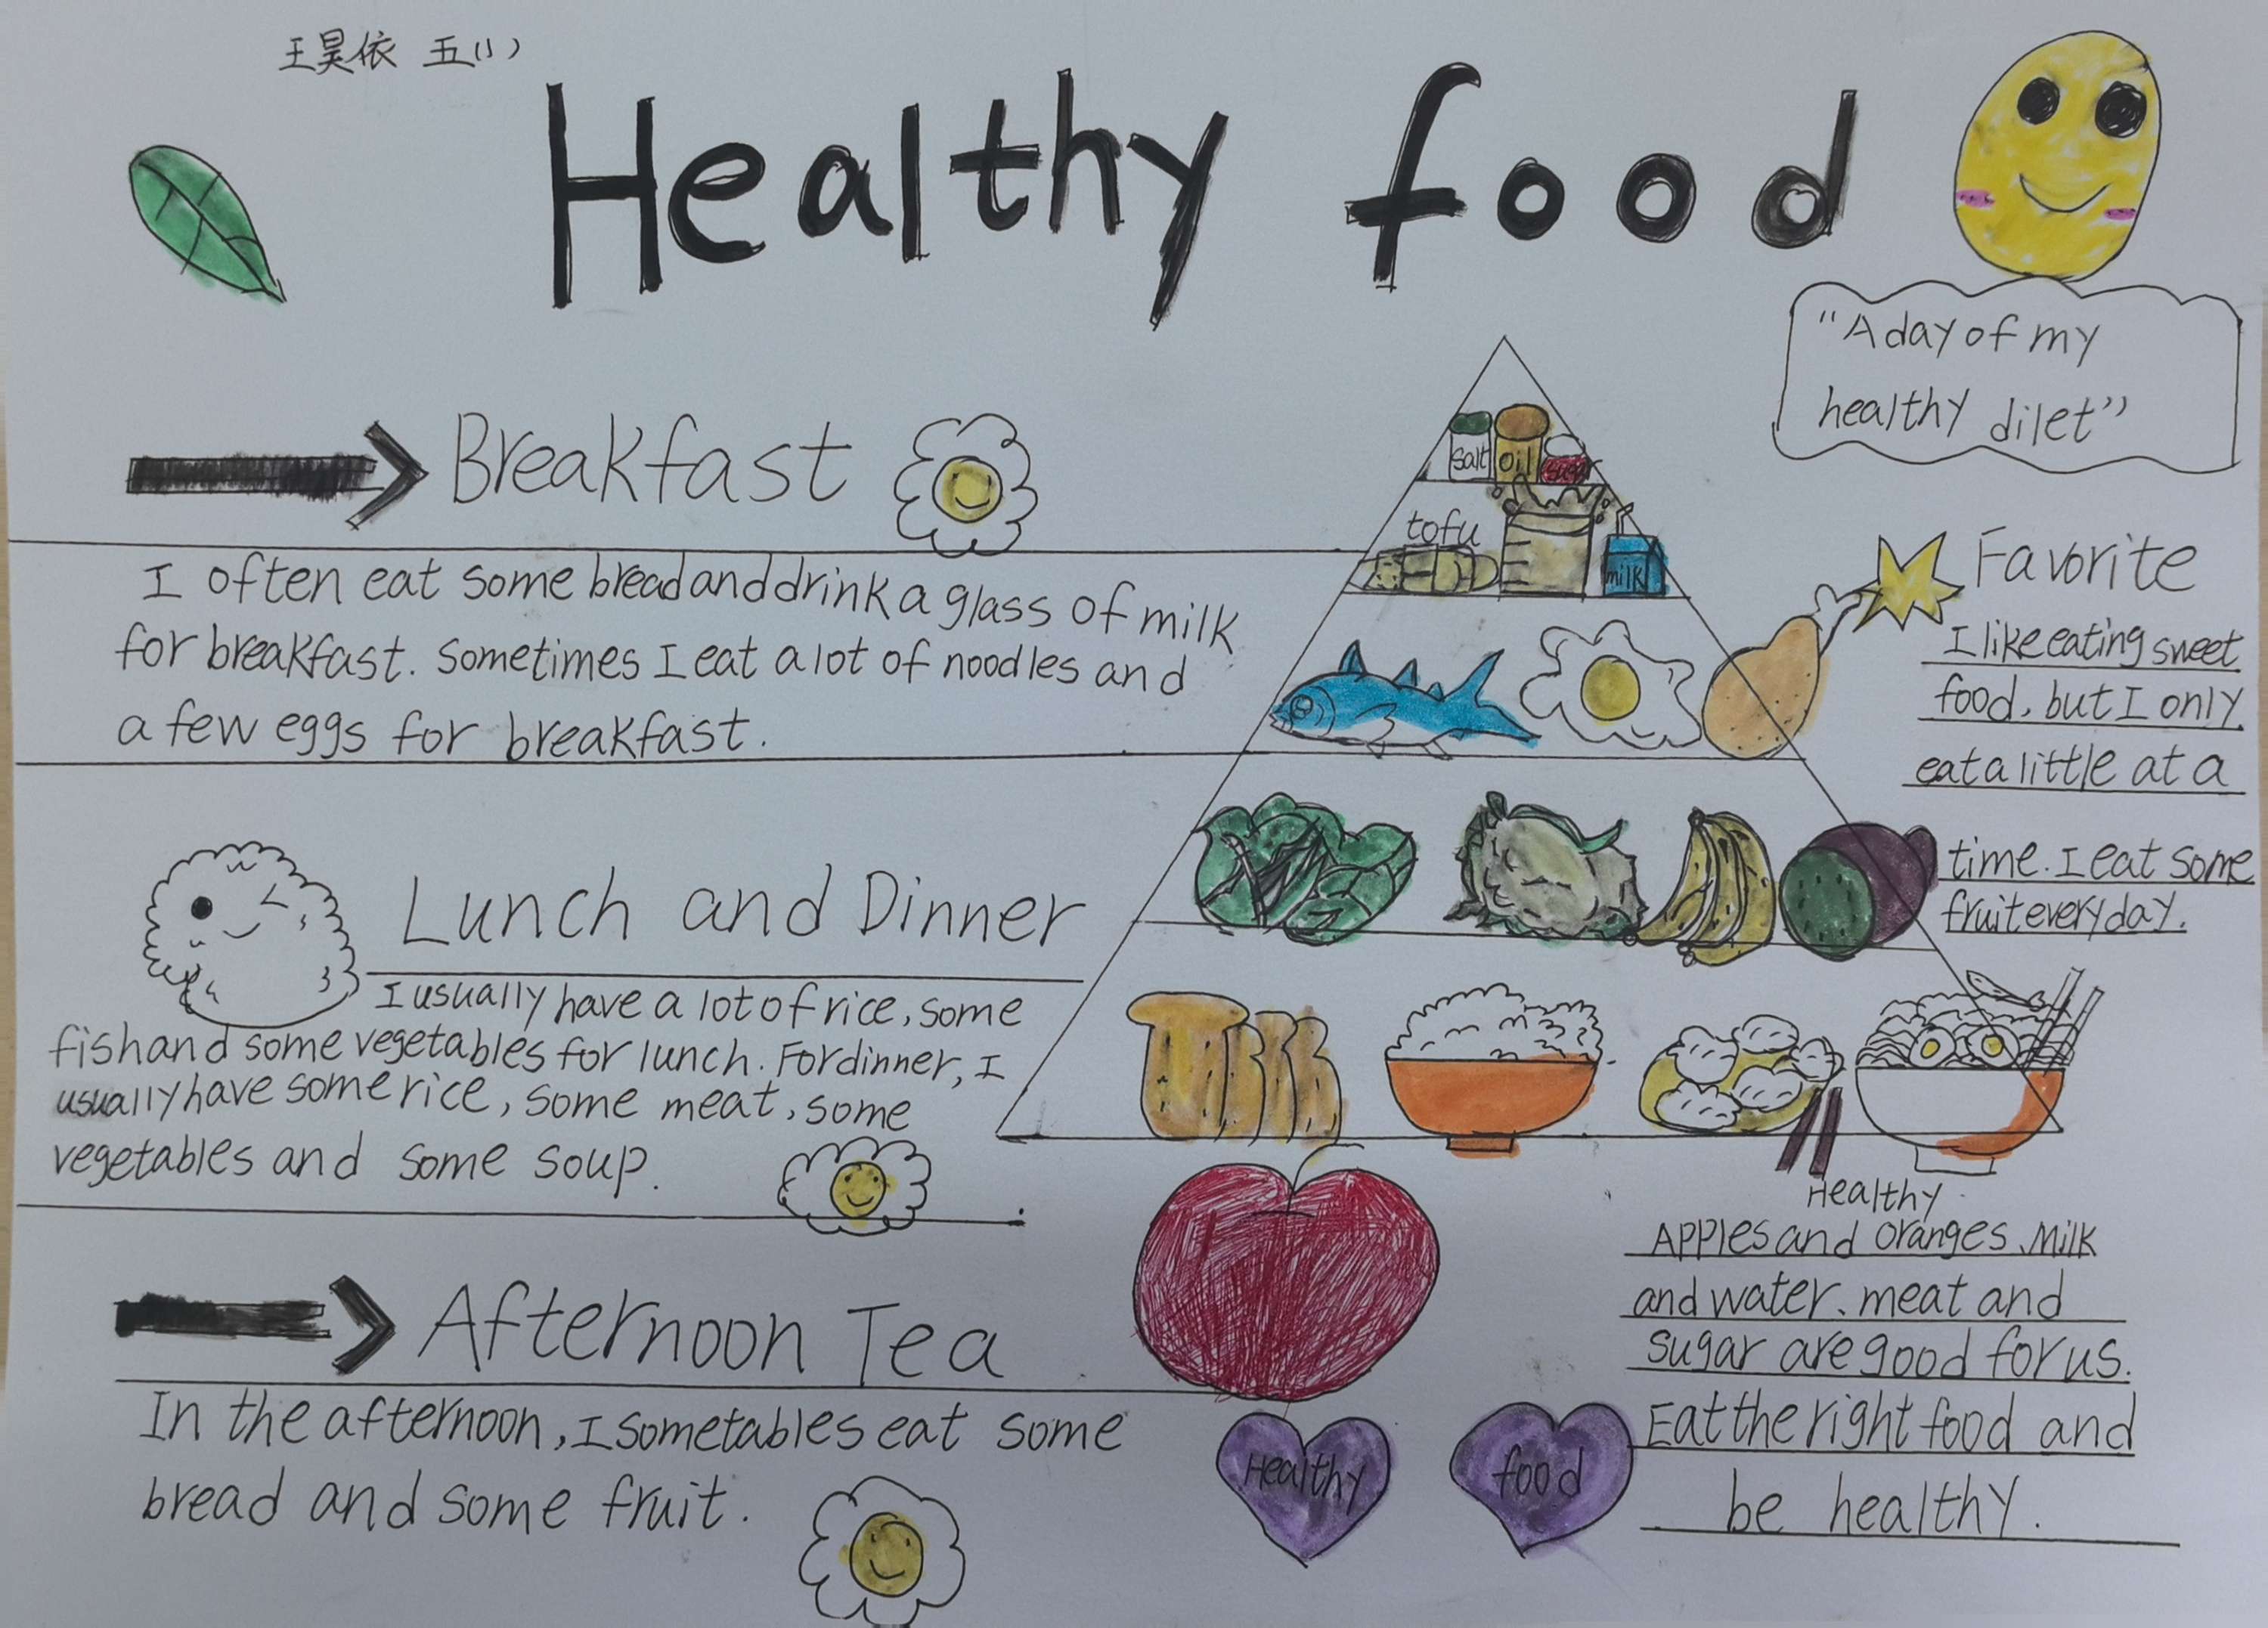 王昊依 五(1)
Healthy food
"A day of my
healthy dilet"
Breakfast
I often eat some bread and drink a glass of milk
for breakfast. Sometimes I eat a lot of noodles and
a few eggs for breakfast.
Lunch and Dinner
I usually have a lot of rice, some
fish and some vegetables for lunch. For dinner, I
usually have some rice, some meat, some
vegetables and some soup.
Afternoon Tea
In the afternoon, I sometables eat some
bread and some fruit.
salt oil sugar
tofu
milk
Favorite
I like eating sweet
food, but I only
eat a little at a
time. I eat some
fruit every day.
Healthy
Apples and oranges、Milk
and water、meat and
sugar are good for us.
Eat the right food and
be healthy.
Healthy food